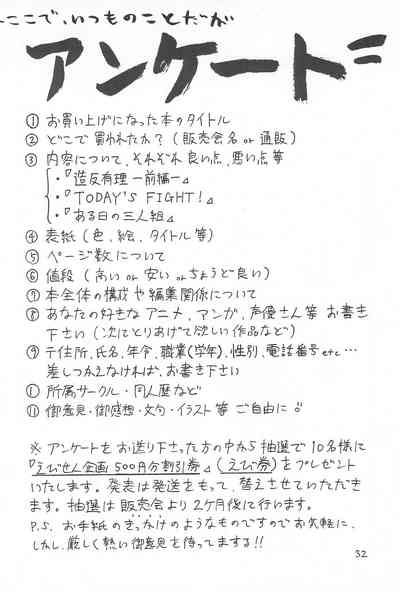 ここで、いつものことだが
アンケート
① お買い上げになった本のタイトル
② どこで買われたか？（販売会名 or 通販）
③ 内容について、それぞれ良い点、悪い点等
・『造反有理 ー前編ー』
・『TODAY'S FIGHT！』
・『ある日の三人組』
④ 表紙（色、絵、タイトル等）
⑤ ページ数について
⑥ 値段（高い or 安い or ちょうど良い）
⑦ 本全体の構成や編集関係について
⑧ あなたの好きなアニメ、マンガ、声優さん等 お書き
下さい（次にとりあげて欲しい作品など）
⑨ 〒住所、氏名、年令、職業(学年)、性別、電話番号 etc…
差しつかえなければ、お書き下さい
所属サークル・同人歴など
⑪ 御意見・御感想・文句・イラスト等 ご自由に
※ アンケートをお送り下さった方の中から抽選で10名様に
『えびせん企画 500円分割引券』（えび券）をプレゼント
いたします。発表は発送をもって、替えさせていただき
ます。抽選は販売会より2ヶ月後に行います。
P.S. お手紙のきっかけのようなものですのでお気軽に、
しかし、厳しく熱い御意見を待ってまする!!
32